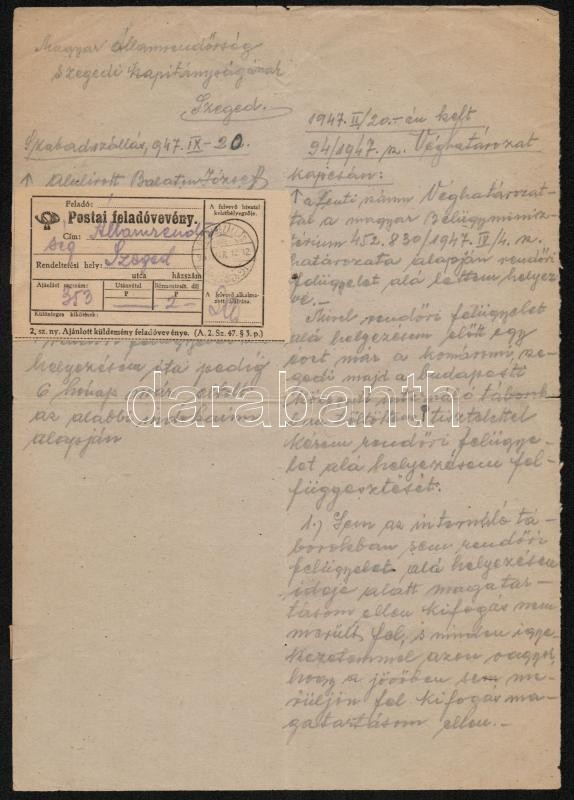 Magyar Államrendőrség
Szegedi Kapitányságának
Szeged.
Szabadszállás, 947. IX-20.
Alulírott Balaton József
Feladó:
Postai feladóvevény.
Cím: Államrendőr
ség
Szeged
Rendeltetési hely:
utca házszám
Ajánlási ragszám:
353
Utánvétel
P
Bérmentesít. díj
P
2-
Különleges kikötések:
A felvevő hivatal
keletbélyegzője.
A felvevő alkalma-
zott aláírása.
2. sz. ny. Ajánlott küldemény feladóvevénye. (A. 2. Sz. 47. § 3. p.)
rendőri felügyelet alá
helyezésem óta pedig
6 hónap már eltelt
az alábbi indokaim
alapján
1947. II/20.-én kelt
94/1947. sz. Véghatározat
kapcsán:
a fenti számú Véghatározat-
tal a magyar Belügyminisz-
térium 452.830/1947. IV/4. sz.
határozata alapján rendőri
felügyelet alá lettem helyez-
ve.
Mivel rendőri felügyelet
alá helyezésem előtt egy
évet már a komáromi, sze-
gedi majd a budapesti
központi internáló táborok-
ban töltöttem tisztelettel
kérem rendőri felügye-
let alá helyezésem fel-
függesztését.
1.) Sem az internáló tá-
borokban sem rendőri
felügyelet alá helyezésem
ideje alatt magatar-
tásom ellen kifogás nem
merült fel, s minden igye-
kezetemmel azon vagyok,
hogy a jövőben sem me-
rüljön fel kifogás ma-
gatartásom ellen.-
darabanth